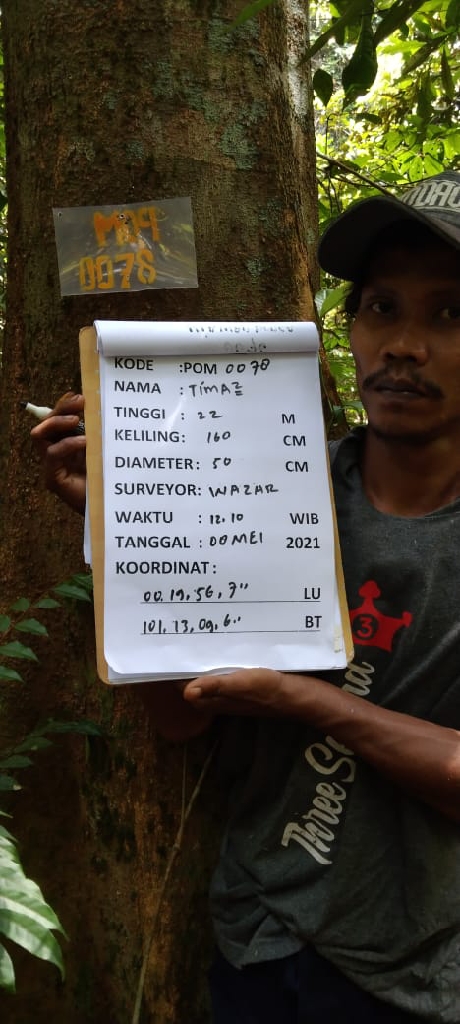 POM
0078
KODE :POM 0078
NAMA : TIMAZ
TINGGI : 22 M
KELILING: 160 CM
DIAMETER: 50 CM
SURVEYOR: WAZAR
WAKTU : 12.10 WIB
TANGGAL : 00 MEI 2021
KOORDINAT:
00.19,56,7" LU
101.13,09,6" BT
3
Three Se